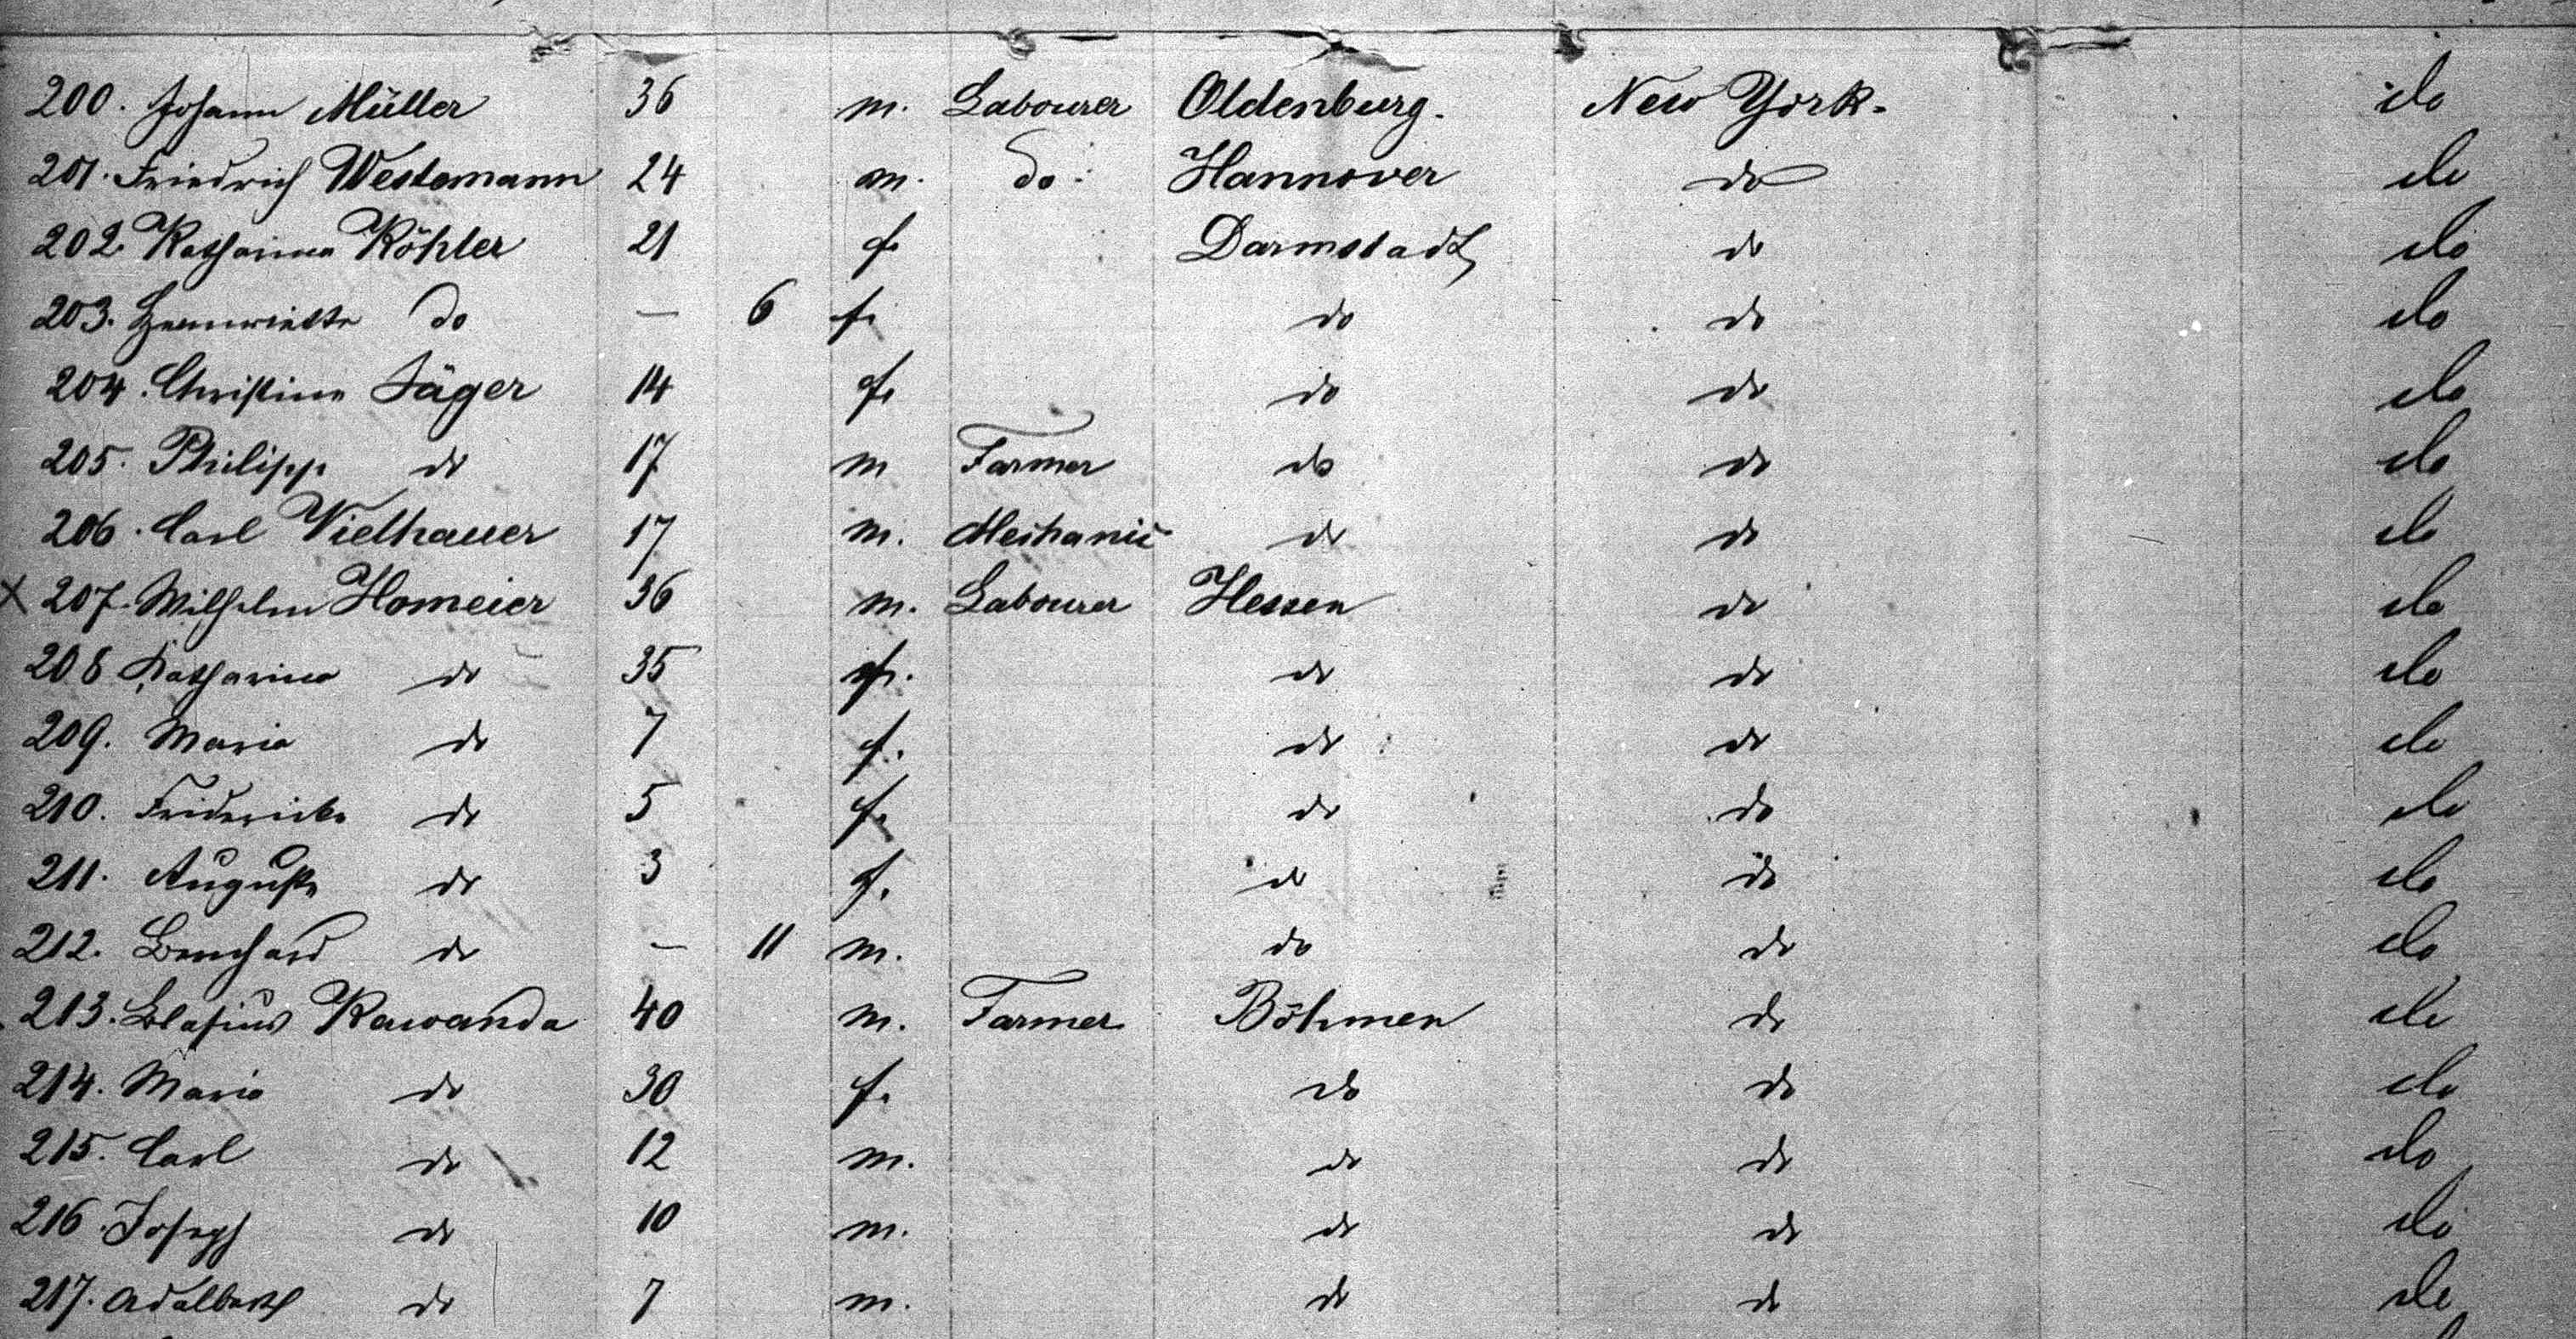 200. Johann Müller 36 m. Labourer Oldenburg. New York. do
201. Friedrich Westemann 24 m. do Hannover do do
202. Katharina Köhler 21 f. Darmstadt do do
203. Henriette do — 6 f. do do do
204. Christine Jäger 14 f. do do do
205. Philipp do 17 m Farmer do do do
206. Carl Vielhauer 17 m. Mechanic do do do
X 207. Wilhelm Homeier 36 m. Labourer Hessen do do
208 Katharina do 35 f. do do do
209. Maria do 7 f. do do do
210. Fridericke do 5 f. do do do
211. Auguste do 3 f. do do do
212. do — 11 m. do do do
213. Blasius Kawanda 40 m. Farmer Böhmen do do
214. Maria do 30 f. do do do
215. Carl do 12 m. do do do
216. Joseph do 10 m. do do do
217. Adalbert do 7 m. do do do